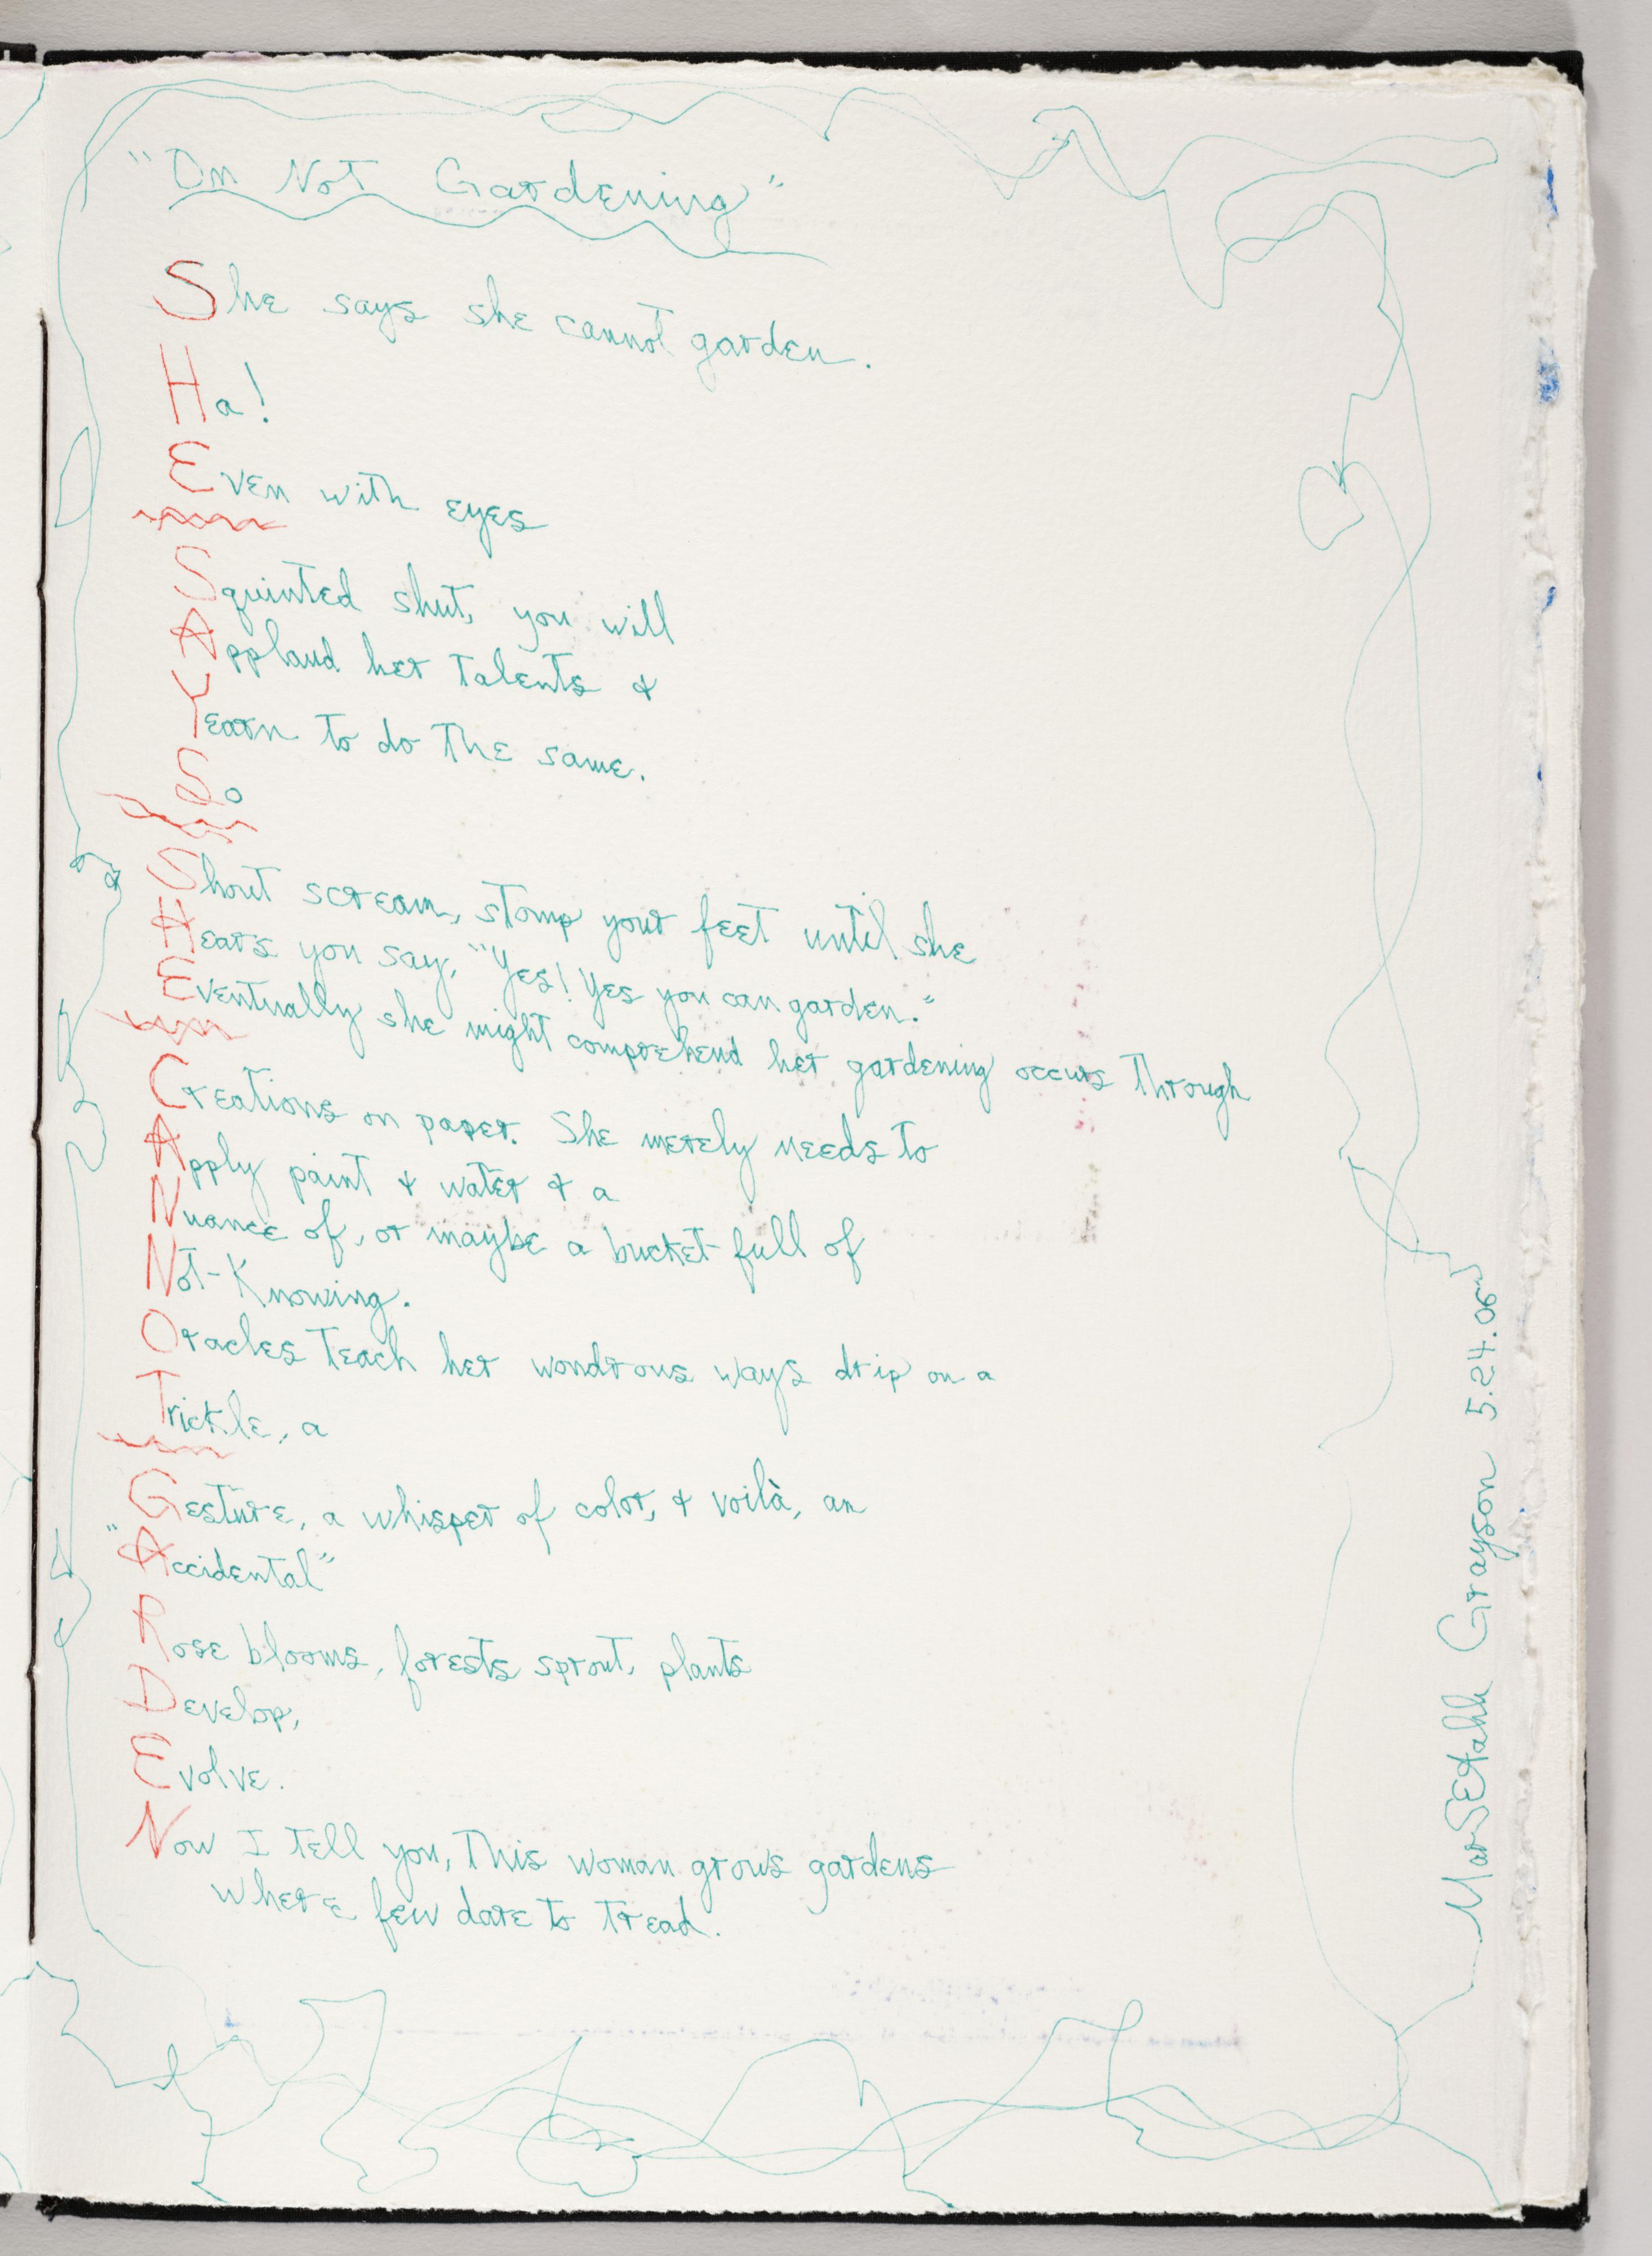 "On Not Gardening"
She says she cannot garden.
Ha!
Even with eyes
Squinted shut, you will
Applaud her talents &
Yearn to do the same.
So
Shout scream, stomp your feet until she
Hears you say, "Yes! Yes you can garden."
Eventually she might comprehend her gardening occurs through
Creations on paper. She merely needs to
Apply paint & water & a
Nuance of, or maybe a bucket full of
Not-Knowing.
Oracles teach her wondrous ways drip on a
Trickle, a
Gesture, a whisper of color, & voilà, an
"Accidental"
Rose blooms, forests sprout, plants
Develop,
Evolve.
Now I tell you, this woman grows gardens
where few dare to tread.
Grayson 5.24.06